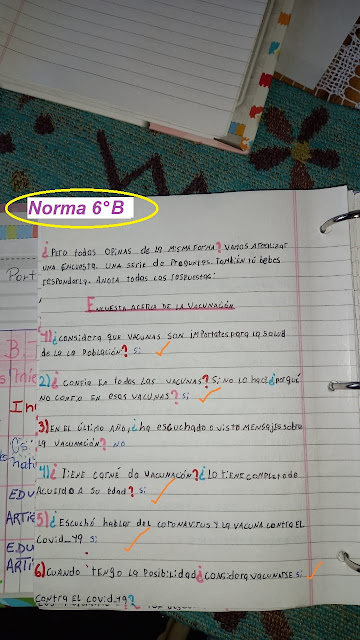 Norma 6°B
¿PERO todos OPINAS de la misma FORMA? VAMOS A REALIZAR
UNA ENCUESTA. UNA SERIE de PREGUNTAS. también tú debes
RESPONDERLA. ANOTA todas las respuestas:
ENCUESTA ACERCA DE LA VACUNACIÓN
1) ¿Considera que VACUNAS SON IMPORTATES PARA la SALUD
de la LA POBLACIÓN? Si
2) ¿CONFIA EN todas LAS VACUNAS? Si NO LO HACE ¿PORQUÉ
NO CONFIO EN ESAS VACUNAS? Si
3) EN EL ÚLTIMO AÑO, ¿ha ESCUCHADO O VISTO MENSAJES SOBRE
LA VACUNACIÓN? NO
4) ¿TIENE CARNÉ DE VACUNACIÓN? ¿LO TIENE COMPLETO DE
ACUERDO A SU EDAD? Si
5) ¿ESCUCHÓ HABLAR DEL CORONAVITUS Y LA VACUNA CONTRA EL
COVID_19 Si
6) CUANDO TENGO LA POSIBILIDAD ¿CONSIDERA VACUNATSE Si
CONTRA EL COVID_19?
Port
B.
In
EDU
ARTÍS
EDU
ARTÍ